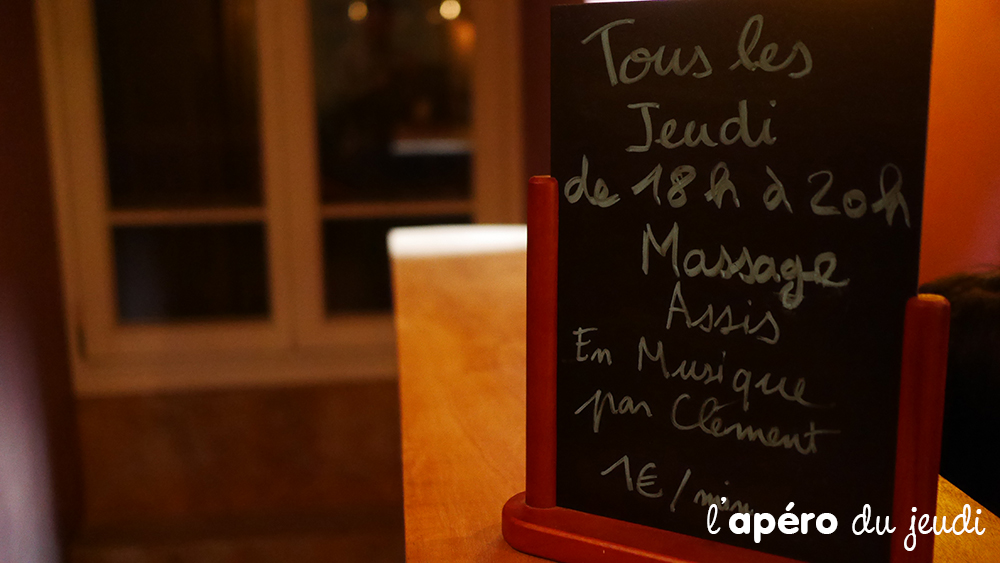 Tous les
Jeudi
de 18h à 20h
Massage
Assis
En Musique
par Clément
1€/min
l'apéro du jeudi